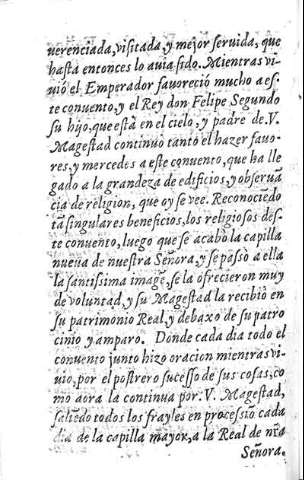 uerenciada, visitada, y mejor seruida, que
hasta entonces lo auia sido. Mientras vi-
uió el Emperador fauoreció mucho a es-
te conuento, y el Rey don Felipe Segundo
su hijo, que està en el cielo, y padre de. V.
Magestad continuo tanto el hazer fauo-
res, y mercedes a este conuento, que ha lle
gado a la grandeza de edificios, y obseruã
cia de religion, que oy se vee. Reconociẽdo
tã singulares beneficios, los religiosos des-
te conuento, luego que se acabò la capilla
nueua de nuestra Señora, y se passò a ella
la santissima imagẽ, se la ofrecieron muy
de voluntad, y su Magestad la recibiò en
su patrimonio Real, y debaxo de su patro
cinio y amparo. Donde cada dia todo el
conuento junto hizo oracion mientras vi-
uio, por el postrero sucesso de sus cosas, co
mo aora la continua por. V. Magestad,
saliẽdo todos los frayles en processiõ cada
dia de la capilla mayor, a la Real de nr̃a
Señora.